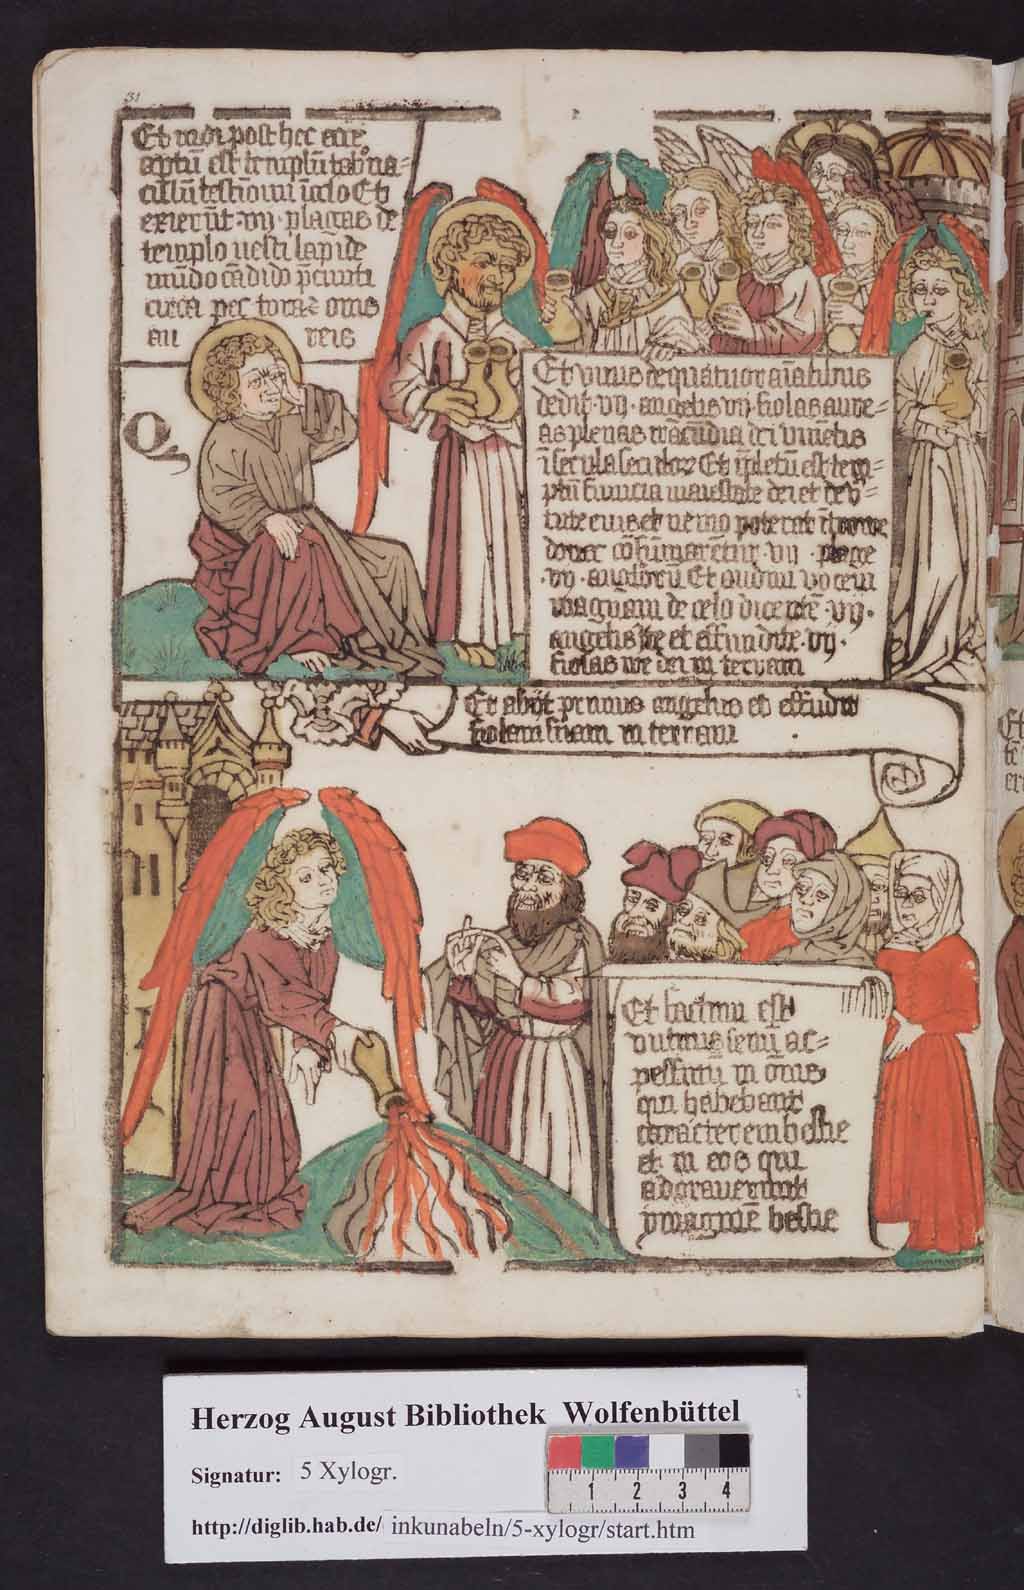 31
Et vidi post hec ecce
aptū est templū tab̄na
culi testimonii ī celo Et
exierūt vij plagas de
templo vesti lapide
mūdo cādido p̄cincti
circa pectora zonis
au reis
Q
Et unus de quatuor aīalibus
dedit · vij · angelis vij · fiolas aure=
as plenas iracūdia dei vivētis
ī secula seculoꝝ Et īpletū est tem=
plū fumo a maiestate dei et de v̓=
tute eius et nemo poterat ītroire
donec cōsūmarētur · vij · plage
· vij · angeloꝝ Et audivi vocem
magnam de celo dicentē · vij ·
angelis Ite et effundite · vij ·
fiolas ire dei in terram
Et abijt primus angelus et effudit
fiolam suam in terram
Et factum est
vulnus sevū ac=
pessimū in oīnes
qui habebant
caracterem bestie
et in eos qui
adoraverunt
ymaginē bestie
Herzog August Bibliothek Wolfenbüttel
Signatur: 5 Xylogr.
1 2 3 4
http://diglib.hab.de/ inkunabeln/5-xylogr/start.htm